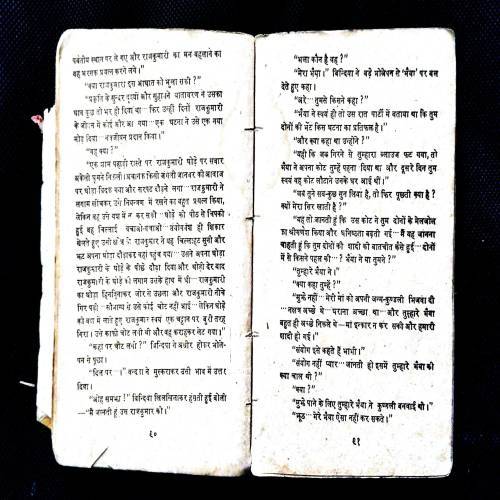 पर्वतीय स्थान पर ले गए और राजकुमारी का मन बहलाने का
वह भरसक प्रयत्न करने लगे।"
"क्या राजकुमारी इस आघात को भुला सकी ?"
"प्रकृति के सुन्दर दृश्यों और सुहावने वातावरण ने उसका
घाव कुछ तो भर ही दिया था… फिर उन्हीं दिनों राजकुमारी
के जीवन में कोई और आ गया… एक घटना ने उसे एक नया
मोड़ दिया… नवजीवन प्रदान किया।"
"वह क्या ?"
"एक शाम पहाड़ी रास्ते पर राजकुमारी घोड़े पर सवार
अकेली घूमने निकली। अचानक किसी जंगली जानवर की आवाज़
पर घोड़ा बिदक गया और सरपट दौड़ने लगा… राजकुमारी ने
लगाम खींचकर उसे नियन्त्रण में रखने का बहुत प्रयत्न किया,
लेकिन वह उसे वश में न कर सकी… घोड़े की पीठ से चिपकी
हुई वह चिल्लाई बचाओ-बचाओ… संयोगवश ही शिकार
खेलते हुए उसी क्षेत्र के राजकुमार ने वह चिल्लाहट सुनी और
झट अपना घोड़ा दौड़ाकर वहां पहुंच गया… उसने अपना घोड़ा
राजकुमारी के घोड़े के पीछे दौड़ा दिया और थोड़ी देर बाद
राजकुमारी के घोड़े की लगाम उसके हाथ में थी… राजकुमारी
का घोड़ा हिनहिनाकर जोर से उछला और राजकुमारी नीचे
गिर पड़ी… सौभाग्य से उसे कोई चोट नहीं आई… लेकिन घोड़े
को वश में लाते हुए राजकुमार स्वयं एक चट्टान पर बुरी तरह
गिरा। उसे काफी चोट लगी थी और वह कराहकर लेट गया।"
"कहां पर चोट लगी ?" बिन्दिया ने अधीर होकर भोलेपन
न से पूछा।
"दिल पर…।" वन्दना ने मुस्कराकर उसी भाव में उत्तर
दिया।
"ओह समझी !" बिन्दिया खिलखिलाकर हंसती हुई बोली
—"मैं जानती हूं उस राजकुमार को।"
६०
"भला कौन है वह ?"
"मेरा भैया।" बिन्दिया ने बड़े भोलेपन से 'भैया' पर बल
देते हुए कहा।
"अरे… तुमसे किसने कहा ?"
"भैया ने स्वयं ही तो उस रात पार्टी में बताया था कि तुम
दोनों की भेंट किस घटना का प्रतिफल है।"
"और क्या कहा था उन्होंने ?"
"यही कि जब गिरने से तुम्हारा ब्लाउज फट गया, तो
भैया ने अपना कोट तुम्हें पहना दिया था और दूसरे दिन तुम
स्वयं वह कोट लौटाने उनके घर आई थीं।"
"जब तूने सब-कुछ सुन लिया है, तो फिर पूछती क्या है ?
क्यों मेरा सिर खाती है ?"
"यह तो जानती हूं कि उस कोट ने तुम दोनों के मेलजोल
का श्रीगणेश किया और घनिष्ठता बढ़ती गई… मैं यह जानना
चाहती हूं कि तुम दोनों की शादी की बातचीत कैसे हुई… दोनों
में से किसने पहल की… ? भैया ने या तुमने ?"
"तुम्हारे भैया ने।"
"क्या कहा तुम्हें ?"
"मुझे नहीं… मेरी मां को अपनी जन्म-कुण्डली भिजवा दी
…नक्षत्र अच्छे थे… घराना अच्छा था… और तुम्हारे भैया
बहुत ही अच्छे निकले थे…मां इन्कार न कर सकी और हमारी
शादी हो गई।"
"संयोग इसे कहते हैं भाभी।"
"संयोग नहीं प्यार… जानती हो इसमें तुम्हारे भैया की
क्या चाल थी ?"
"क्या ?"
"मुझे पाने के लिए तुम्हारे भैया ने कुण्डली बनवाई थी।"
"झूठ… मेरे भैया ऐसा नहीं कर सकते।"
६१